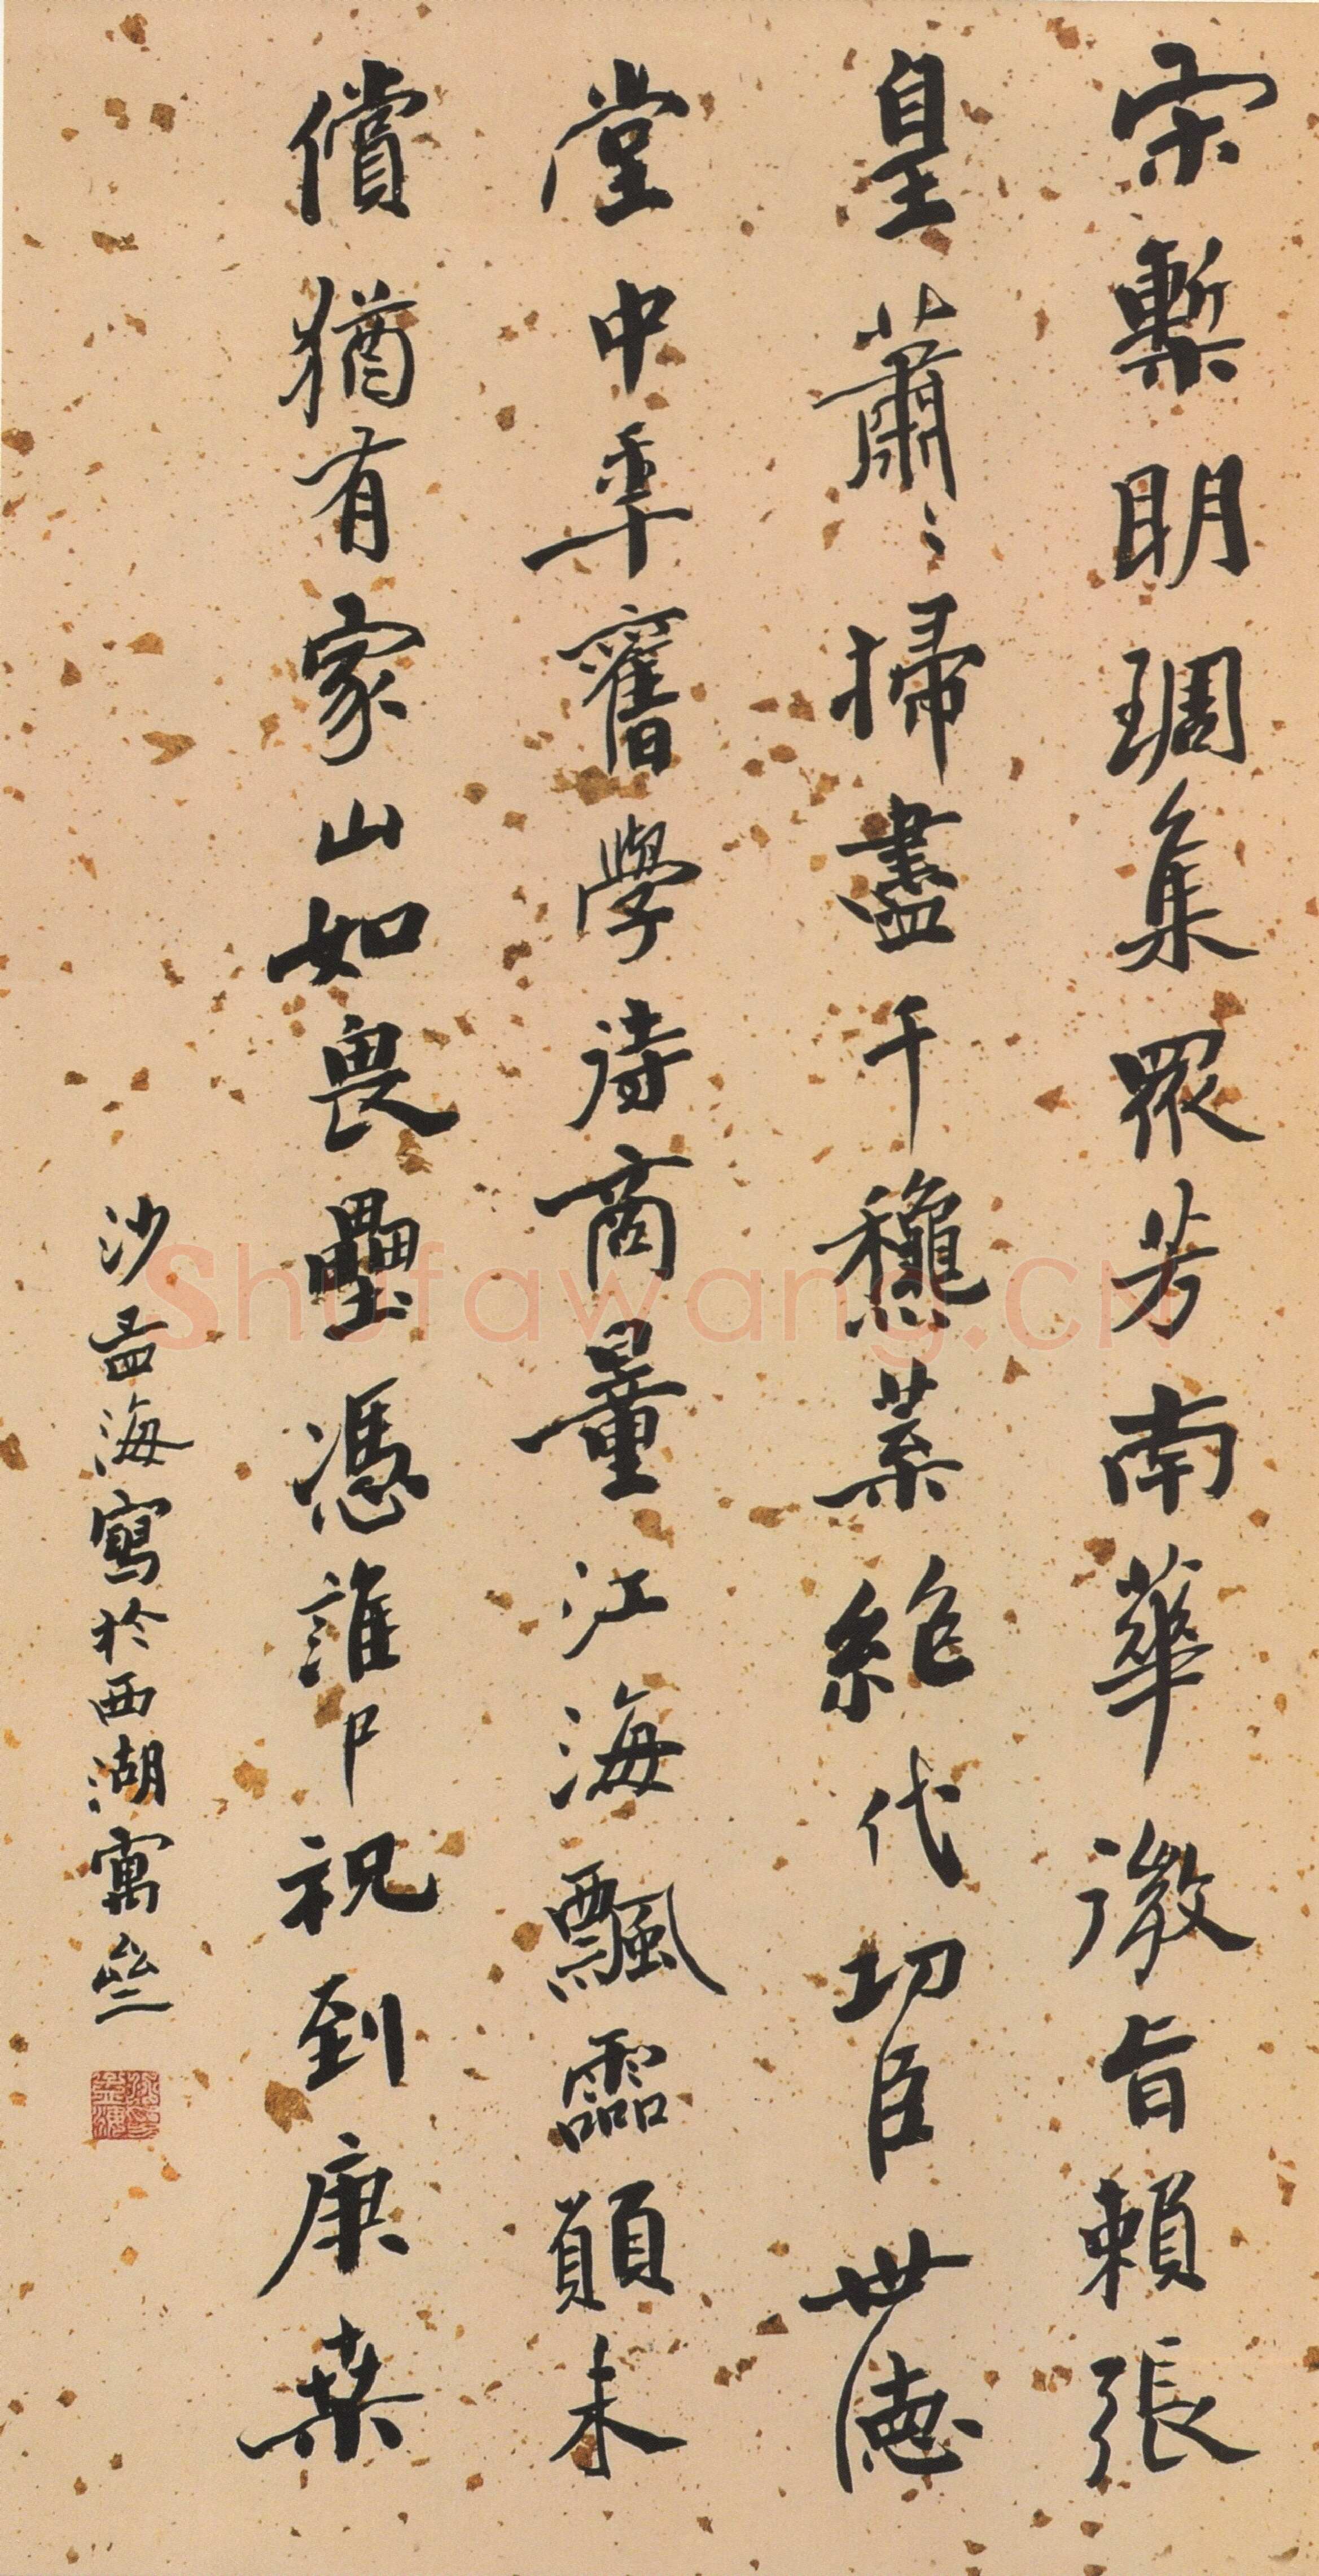 宋槧明琱集眾芳南華微旨賴張
皇蕭〻掃盡千龝葉絕代功臣世德
堂中秊舊學待商量江海飄霝願未
償猶有家山如畏壘憑誰尸祝到庚桑
沙孟海寫於西湖寓
Shufawang.CN